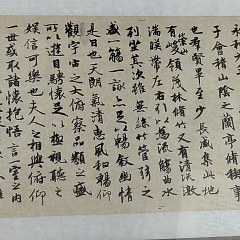 永和九年
于會稽山陰之蘭亭脩稧事
也群賢畢至少長咸集此地
有崇山峻領茂林脩竹又有清流激
湍暎帶左右引以為流觴曲水
列坐其次雖無絲竹管弦之
盛一觴一詠亦足以暢敘幽情
是日也天朗氣清惠風和暢仰
觀宇宙之大俯察品類之盛
所以遊目騁懷足以極視聽之
娛信可樂也夫人之相與俯仰
一世或取諸懷抱悟言一室之內